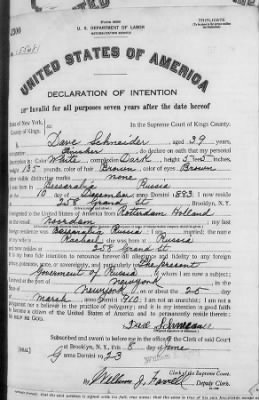 U. S. DEPARTMENT OF LABOR
NATURALIZATION SERVICE
TRIPLICATE
UNITED STATES OF AMERICA
DECLARATION OF INTENTION
Invalid for all purposes seven years after the date hereof
State of New York,
County of Kings.
In the Supreme Court of Kings County.
I, Dave Schneider, aged 39 years,
occupation, do declare on oath that my personal
description is: Color White, complexion Dark, height 5 feet 5 inches,
weight 135 pounds, color of hair Brown, color of eyes Brown
other visible distinctive marks none
I was born in Bessarabia Russia
on the 10 day of December, anno Domini 1883; I now reside
at 258 Grand St, Brooklyn, N. Y.
I emigrated to the United States of America from Rotterdam Holland
on the vessel Noordam; my last
foreign residence was Bessarabia Russia; I am married; the name
of my wife is Rachael; she was born in Russia
and now resides at 258 Grand St
It is my bona fide intention to renounce forever all allegiance and fidelity to any foreign
prince, potentate, state, or sovereignty, and particularly to The present
Goverment of Russia, of whom I am now a subject;
I arrived at the port of Newyork, in the
State of Newyork, on or about the 25 day
of March, anno Domini 1910; I am not an anarchist; I am not a
polygamist nor a believer in the practice of polygamy; and it is my intention in good faith
to become a citizen of the United States of America and to permanently reside therein:
SO HELP ME GOD.
Subscribed and sworn to before me in the office of the Clerk of said Court
at Brooklyn, N. Y., this 8 day of June
anno Domini 1923
[SEAL]
Clerk of the Supreme Court.
By William J. Farrell, Deputy Clerk.